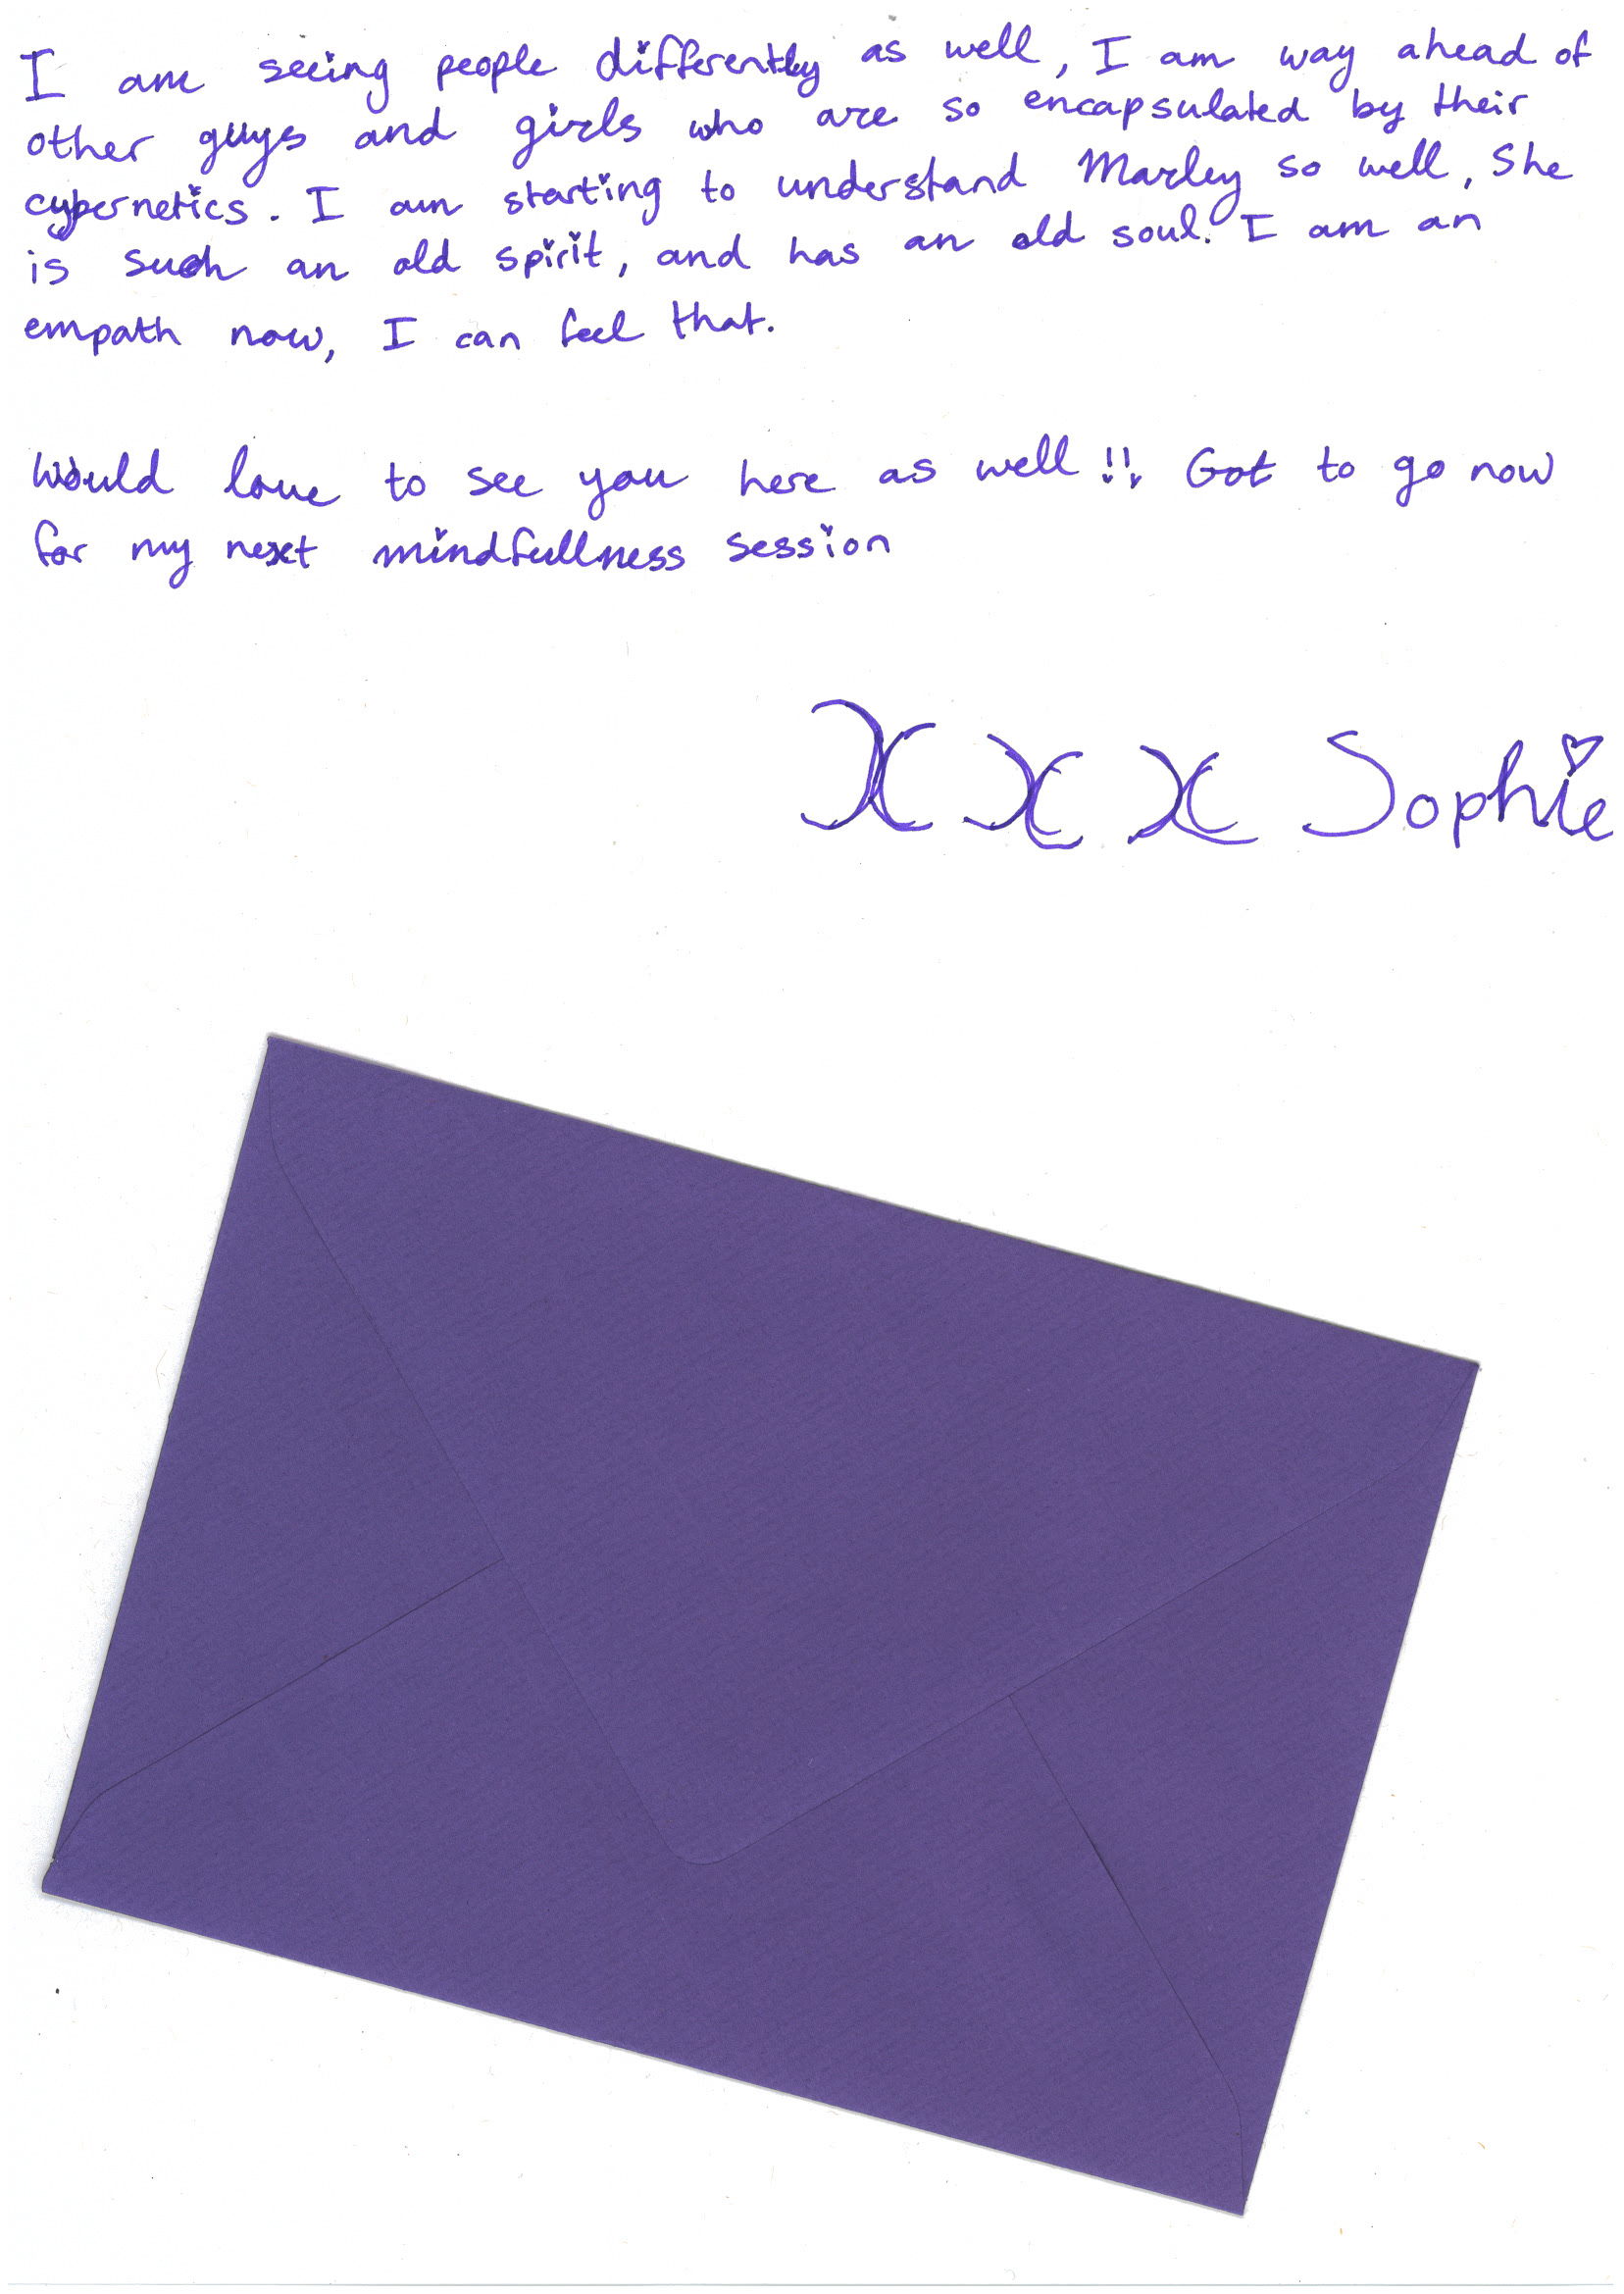 I am seeing people differently as well, I am way ahead of
other guys and girls who are so encapsulated by their
cybernetics. I am starting to understand Marley so well, She
is such an old spirit, and has an old soul. I am an
empath now, I can feel that.
Would love to see you here as well!!, Got to go now
for my next mindfullness session
X X X Sophie